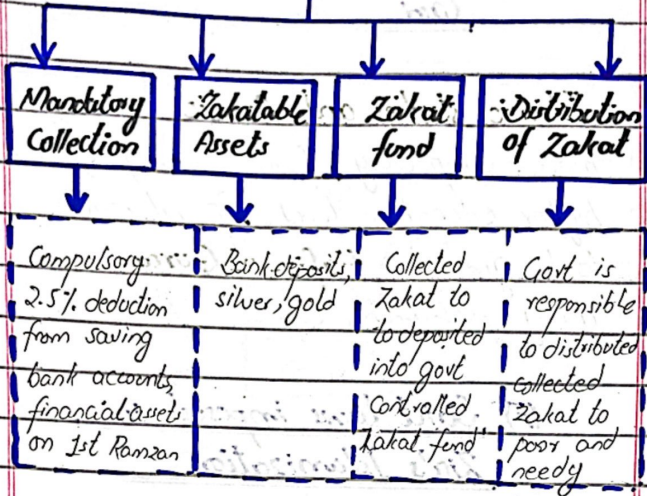 Manditory
Collection
Zakatable
Assets
Zakat
fund
Distribution
of Zakat
Compulsory
2.5% deduction
from saving
bank accounts,
financial assets
on 1st Ramzan
Bank deposits,
silver, gold
Collected
Zakat to
to deposited
into govt
controlled
Zakat fund
Govt is
responsible
to distributed
collected
Zakat to
poor and
needy